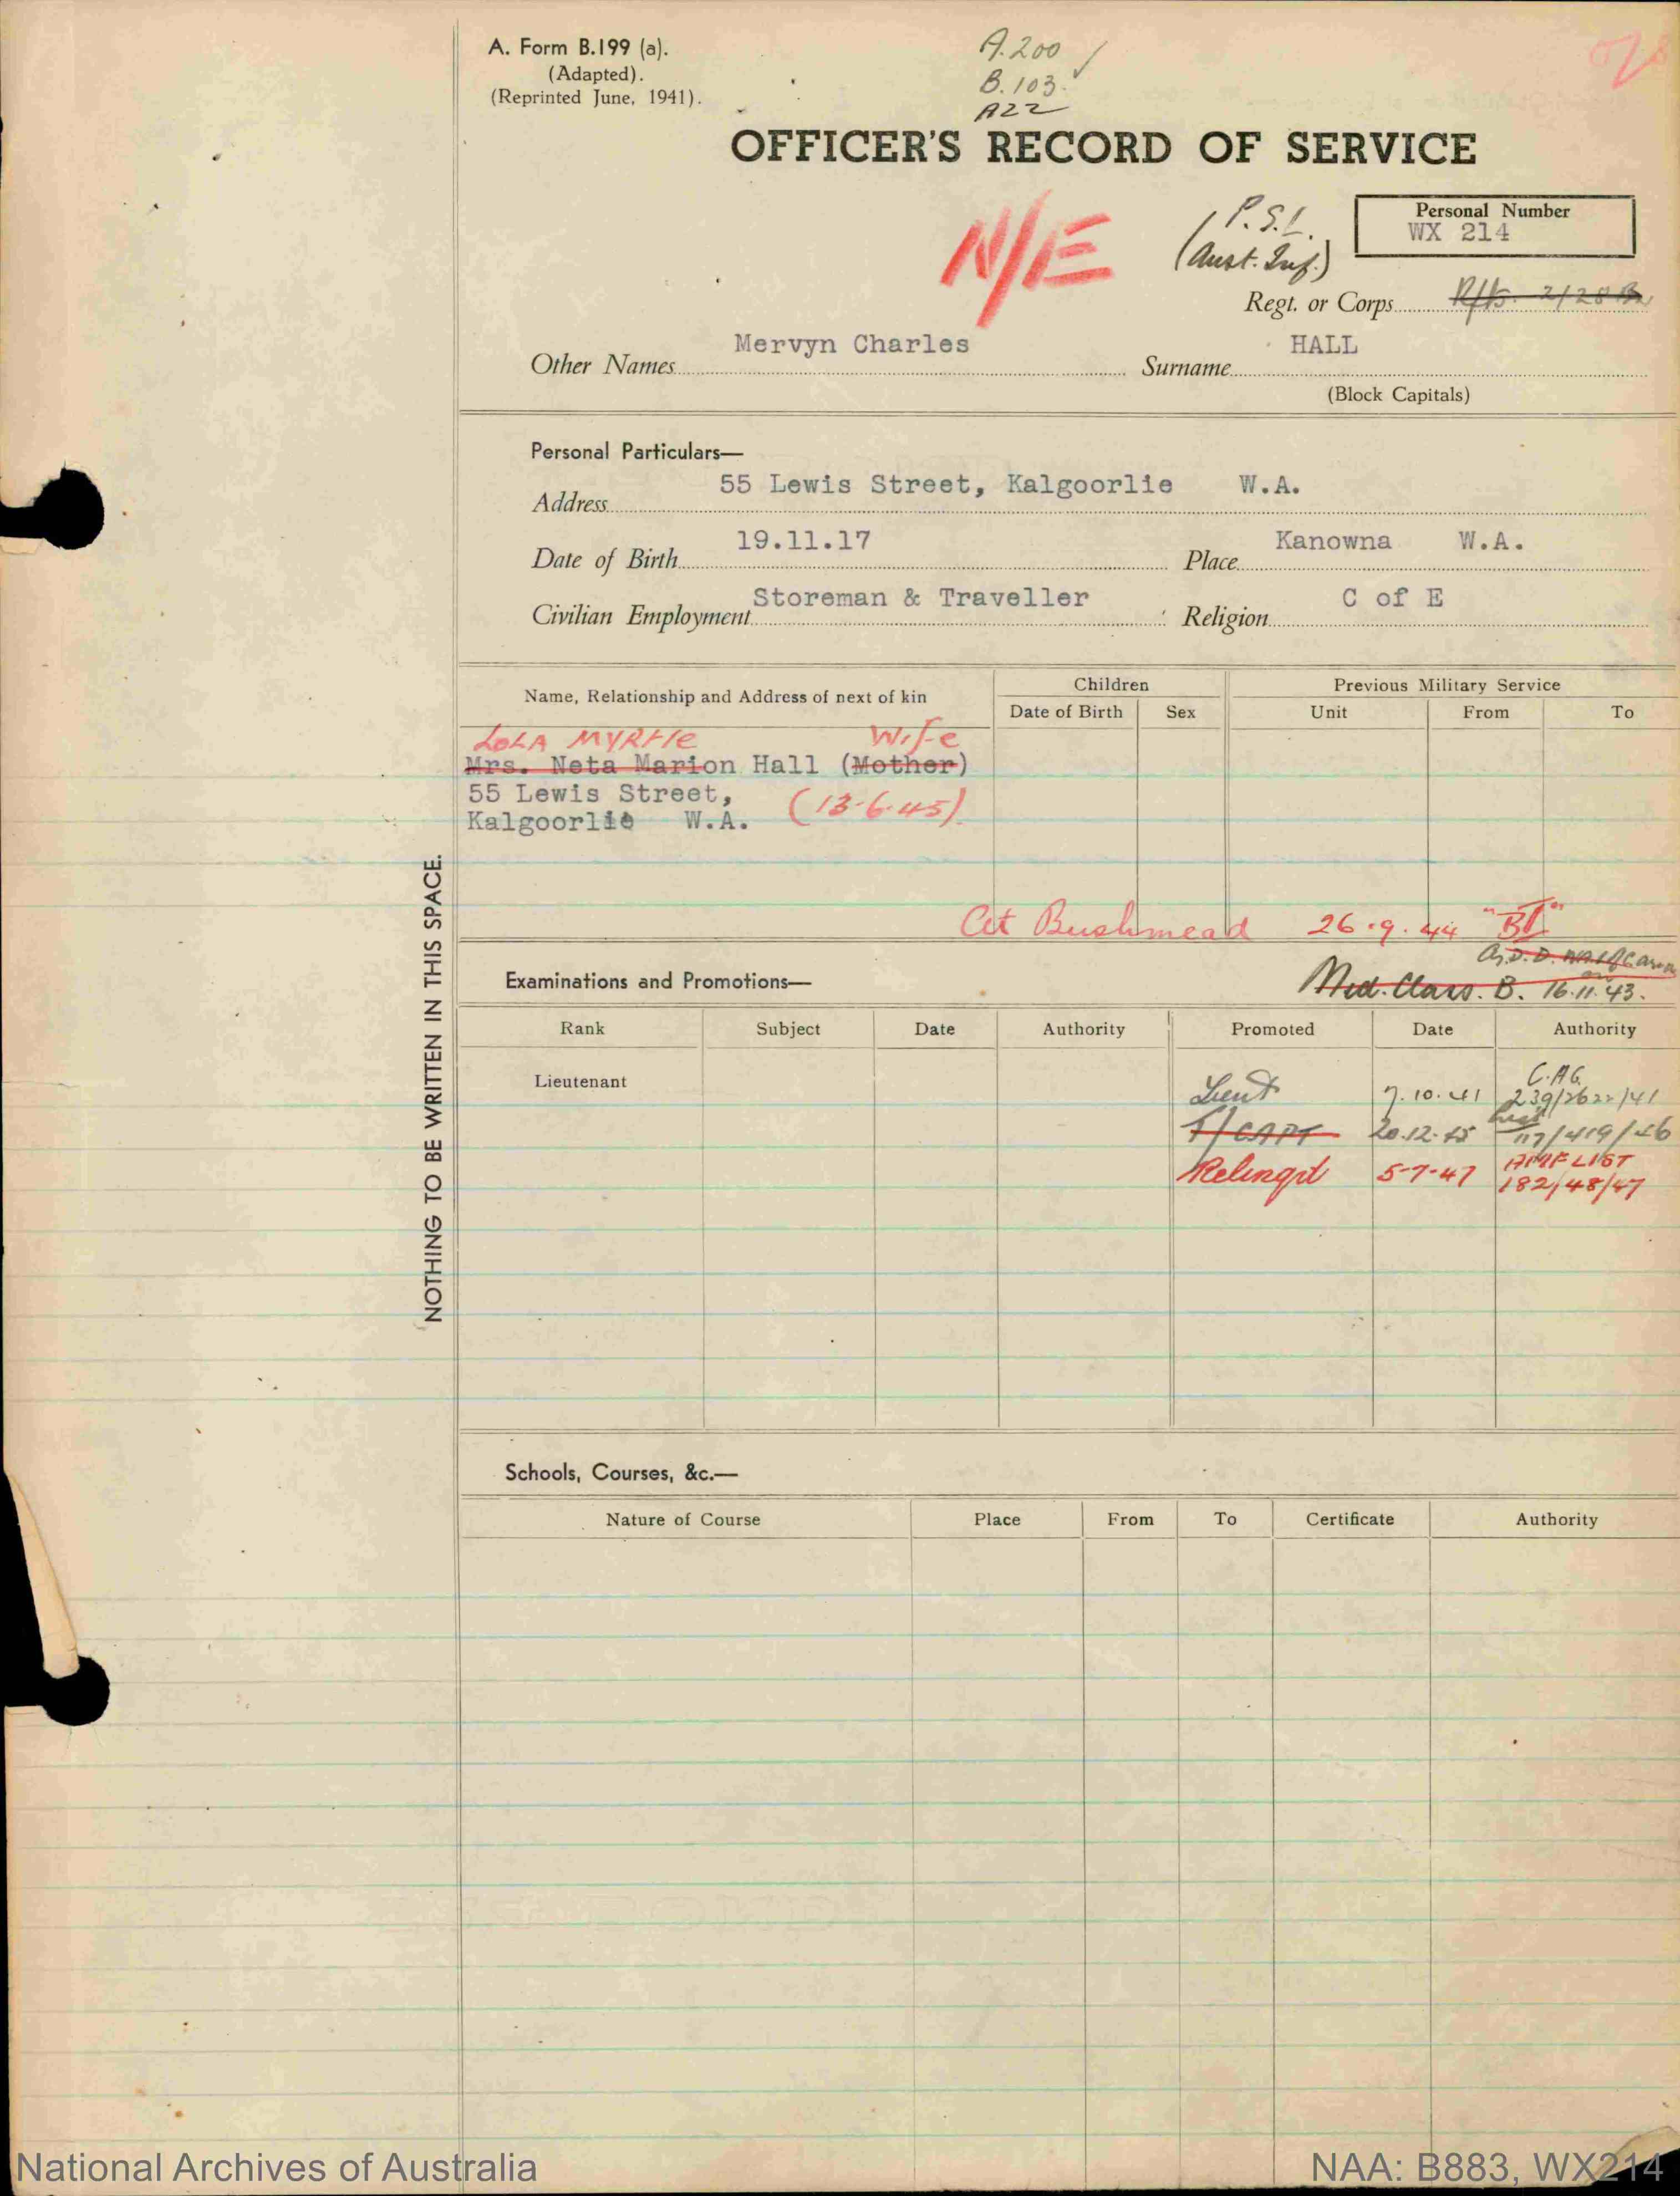 A. Form B.199 (a).
(Adapted).
(Reprinted June, 1941).
A.200
B.103.
A22
OFFICER'S RECORD OF SERVICE
N/E
P.S.I.
(Aust. Inf.)
Personal Number
WX 214
Regt. or Corps
Other Names Mervyn Charles Surname HALL
(Block Capitals)
Personal Particulars—
Address 55 Lewis Street, Kalgoorlie W.A.
Date of Birth 19.11.17 Place Kanowna W.A.
Civilian Employment Storeman & Traveller Religion C of E
Name, Relationship and Address of next of kin Children Previous Military Service
Date of Birth Sex Unit From To
LOLA MYRTle Wife
Mrs. Neta Marion Hall (Mother)
55 Lewis Street,
Kalgoorlie W.A. (13.6.45)
NOTHING TO BE WRITTEN IN THIS SPACE.
At Bushmead 26.9.44
Med. Class. B. 16.11.43.
Examinations and Promotions—
Rank Subject Date Authority Promoted Date Authority
Lieutenant
Lieut 7.10.41 C.A.G. 239/2622/41
T/CAPT 20.12.45 117/419/46
Relinqd 5-7-47 AMF LIST 182/48/47
Schools, Courses, &c.—
Nature of Course Place From To Certificate Authority
National Archives of Australia NAA: B883, WX214